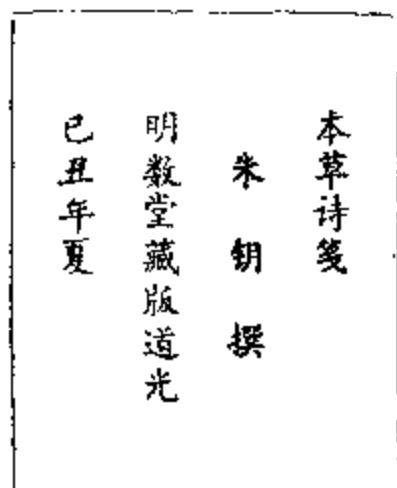 本草诗笺
朱钥撰
明数堂藏版道光
己丑年夏